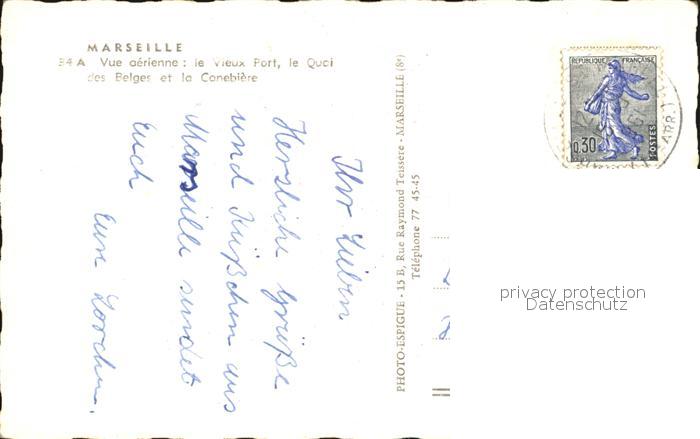 MARSEILLE
34 A Vue aérienne : le Vieux Port, le Quai
des Belges et la Canebière
Ihr Lieben
Herzliche Grüße
und Küßchen aus
Marseille sendet
Euch
Eure Lorchen.
PHOTO-ESPIGUE - 15 B, Rue Raymond Teissère - MARSEILLE (8e)
Téléphone 77 45-45
REPUBLIQUE FRANÇAISE
0,30
POSTES
ARR.
privacy protection
Datenschutz